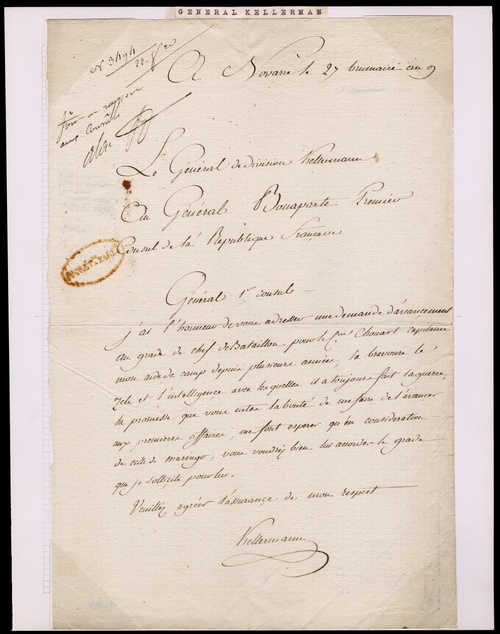 GENERAL KELLERMAN
N° 3494
A Novarre le 27 brumaire an 9
aux Consuls
Le Général de division Kellermann
Au Général Bonaparte Premier
Consul de la République française
Général 1er Consul
j'ai l'honneur de vous adresser une demande d'avancement
au grade de chef de Bataillon pour le Cen Chouart capitaine
mon aide de camp depuis plusieurs années, la bravoure le
zele et l'intelligence avec lesquelles il a toujours fait la guerre,
la promesse que vous eutes la bonté de me faire de l'avancer
aux premieres affaires, me font esperer qu'en consideration
de celle de maringo, vous voudrez bien lui accorder le grade
que je sollicite pour lui.
Veuillez agréer l'assurance de mon respect
Kellermann